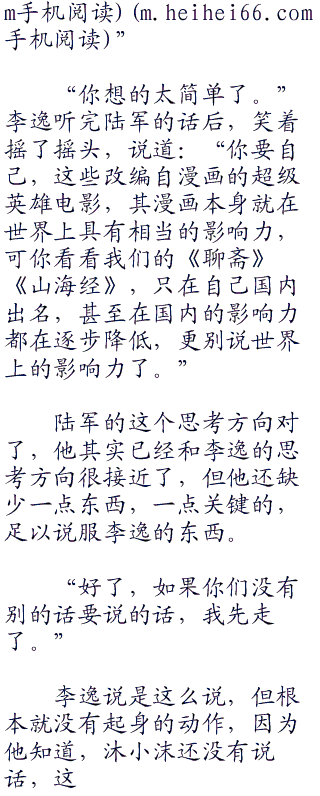 m手机阅读)(m.heihei66.com
手机阅读)”
“你想的太简单了。”
李逸听完陆军的话后，笑着
摇了摇头，说道：“你要自
己，这些改编自漫画的超级
英雄电影，其漫画本身就在
世界上具有相当的影响力，
可你看看我们的《聊斋》
《山海经》，只在自己国内
出名，甚至在国内的影响力
都在逐步降低，更别说世界
上的影响力了。”
陆军的这个思考方向对
了，他其实已经和李逸的思
考方向很接近了，但他还缺
少一点东西，一点关键的，
足以说服李逸的东西。
“好了，如果你们没有
别的话要说的话，我先走
了。”
李逸说是这么说，但根
本就没有起身的动作，因为
他知道，沐小沫还没有说
话，这